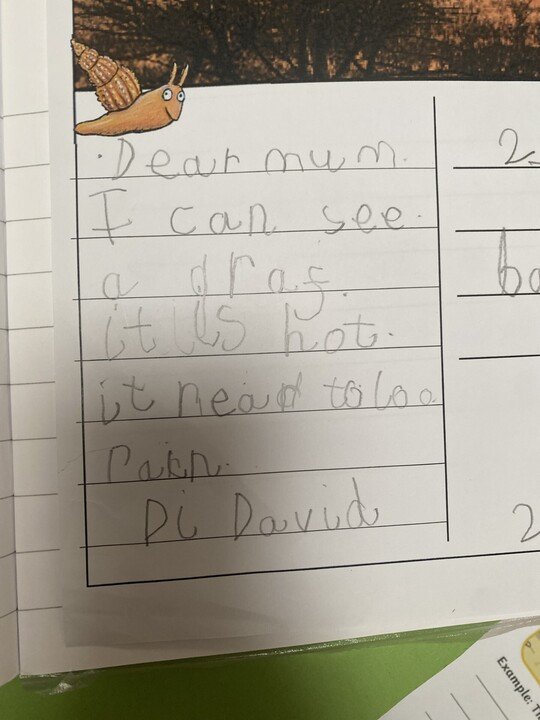 Dear mum.
I can see.
a draf.
it is hot.
it neard to loo
rain.
Di David
2
bo
2
Example: T